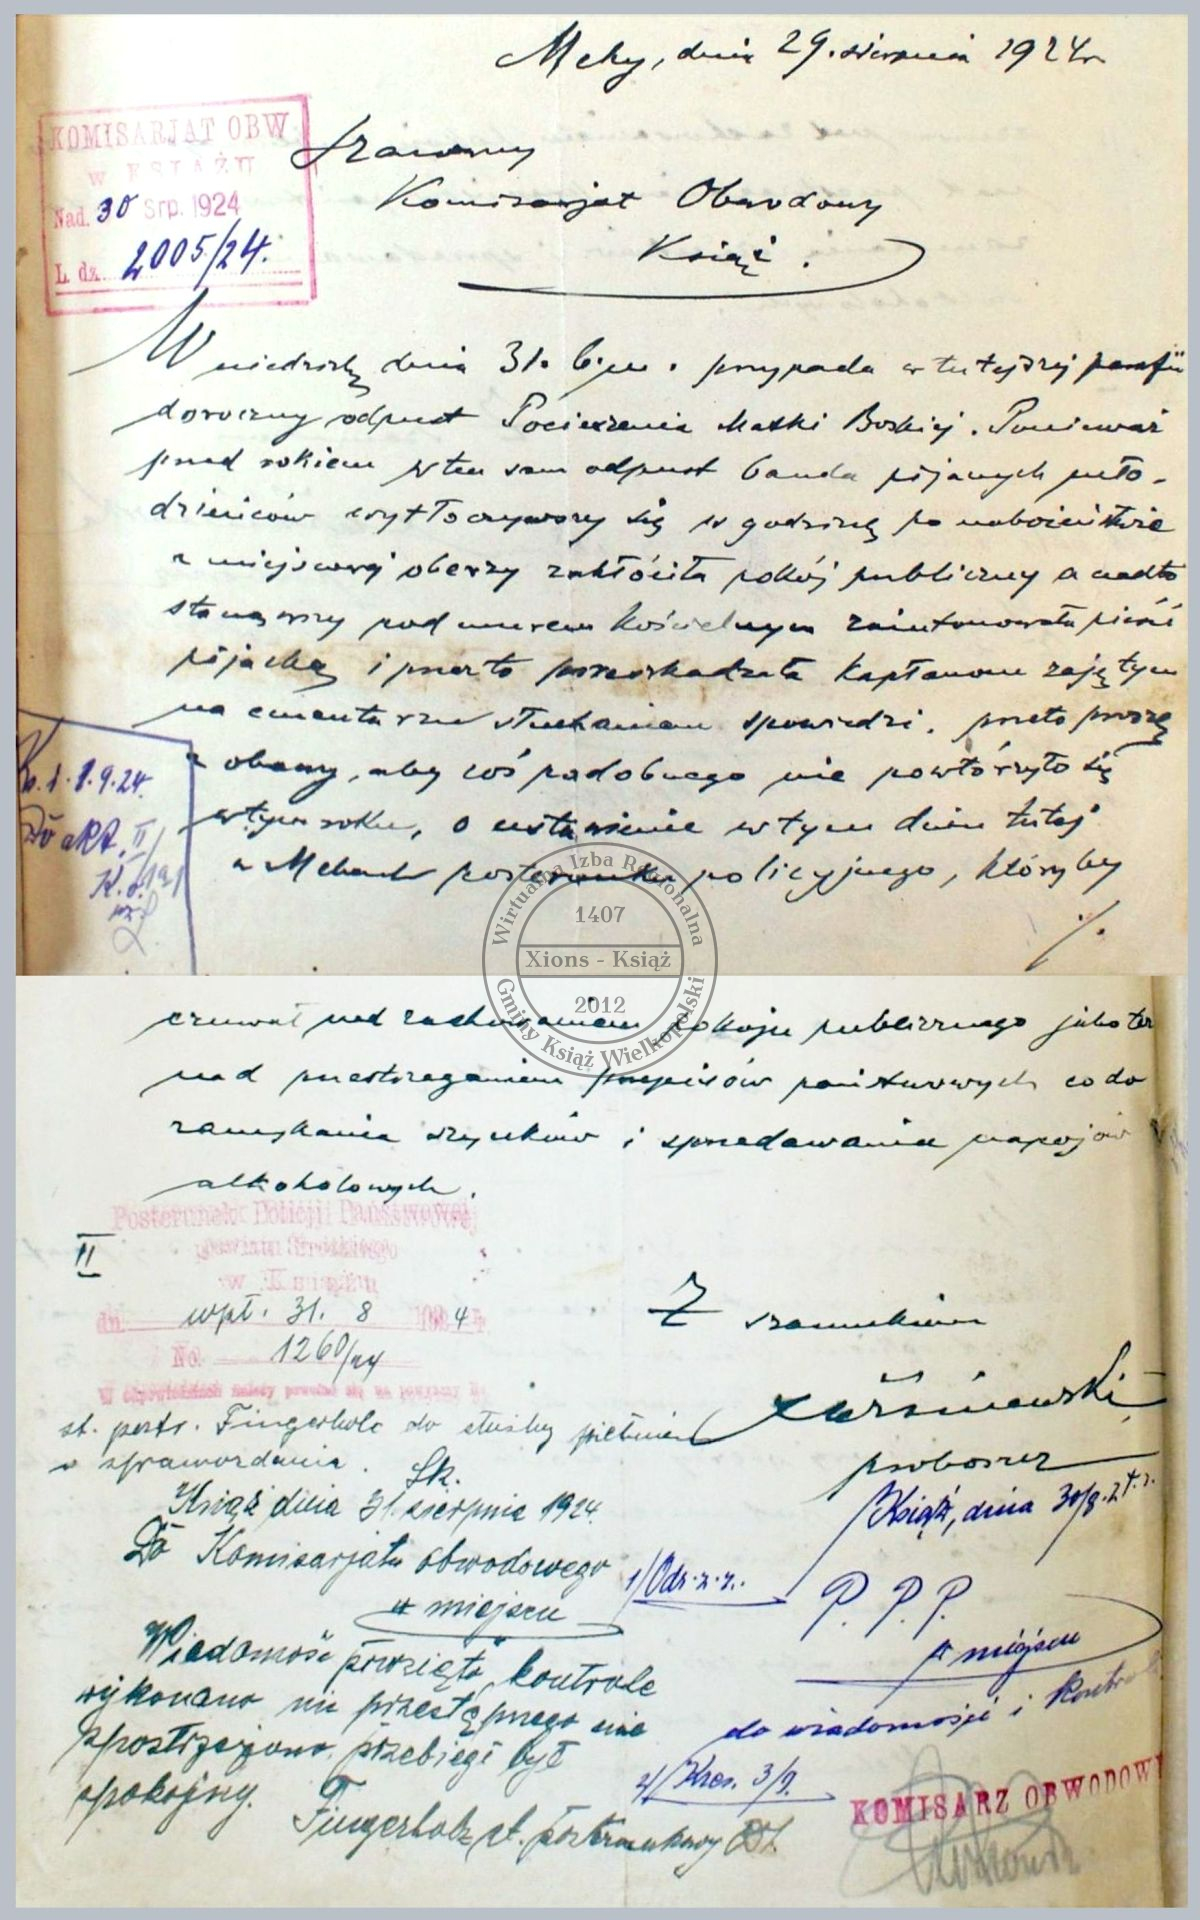 Mchy, dnia 29. sierpnia 1924 r.
KOMISARJAT OBW
w KSIĄŻU
Nad. 30 Srp. 1924
L. dz. 2005/24.
Szanowny
Komisarjat Obwodowy
Książ.
W niedzielę dnia 31. b.m. przypada w tutejszej parafii
doroczny odpust Pocieszenia Matki Boskiej. Ponieważ
przed rokiem w ten sam odpust banda pijanych mło-
dzieńców wytłoczywszy się w godzinę po nabożeństwie
z miejscowej oberży zakłóciła pokój publiczny a nadto
stanąwszy pod murem kościelnym zaintonowała pieśń
pijacką i przez to przeszkadzała kapłanom zajętym
na cmentarzu słuchaniem spowiedzi, przeto proszę
z obawy, aby coś podobnego nie powtórzyło się
w tym roku, o ustawienie w tym dniu tutaj
w Mchach posterunku policyjnego, któryby
./.
1.9.24.
Do akt. II
Wirtualna Izba Regionalna
1407
Xions - Książ
2012
Gminy Książ Wielkopolski
czuwał nad zachowaniem pokoju publicznego jako też
nad przestrzeganiem przepisów państwowych co do
zamykania szynków i sprzedawania napojów
alkoholowych.
II
Posterunek Policji Państwowej
powiatu Śremskiego
w Książu
dn. wpł. 31. 8 1924 r.
No. 1260/24
W odpowiedziach należy powołać się na powyższy No.
Z szacunkiem
proboszcz
st. post. Fingerholc do służby
i sprawozdania.
Książ dnia 31. sierpnia 1924.
Do Komisarjatu obwodowego
w miejscu
Wiadomość powzięto, kontrole
wykonano nic przestępnego nie
spostrzeżono, przebieg był
spokojny.
Fingerholc st. posterunkowy
Książ, dnia 30/8.24 r.
1/ Odr. z. r.
P. P. P.
w miejscu
do wiadomości i kontroli
2/ Kres. 3/9.
KOMISARZ OBWODOWY